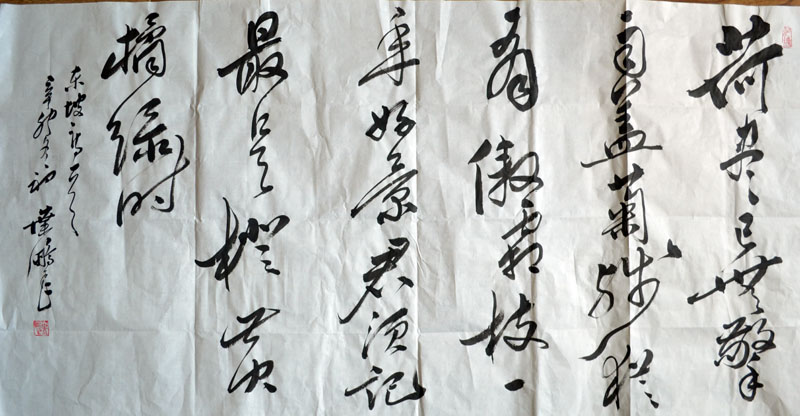 荷尽已無擎
雨盖菊残猶
有傲霜枝一
年好景君须记
最是橙黄
橘绿时
东坡诗一首
辛卯冬初